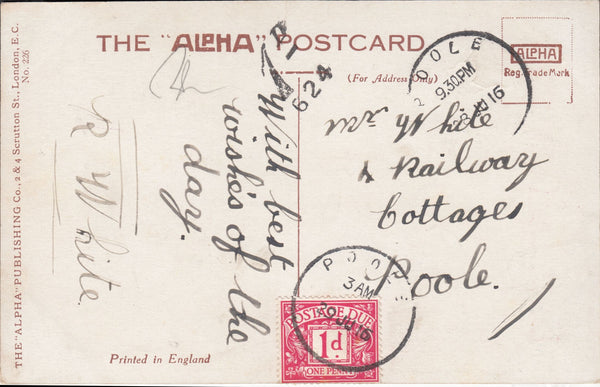 THE "ALPHA" POSTCARD
(For Address Only)
ALPHA
Reg. Trade Mark
THE "ALPHA" PUBLISHING Co., 2 & 4 Scrutton St., London, E.C.
No. 226
With best
wishes of the
day.
R White
624
POOLE
9.30PM
16
Mr White
Railway
Cottages
Poole.
POOL
3 AM
16
POSTAGE DUE
1d
ONE PENNY
Printed in England